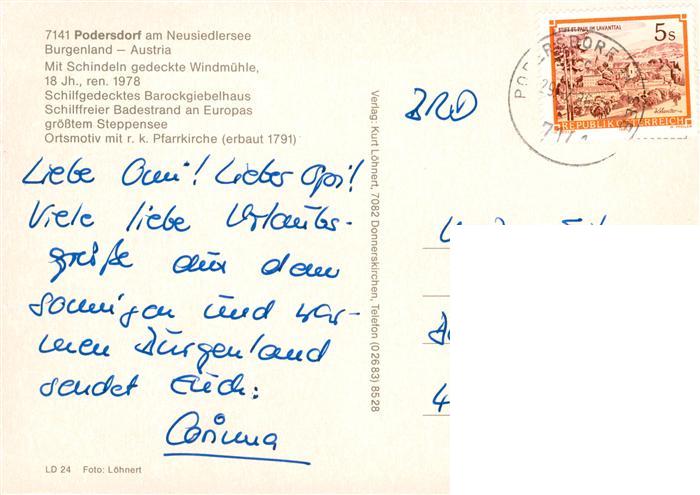 7141 Podersdorf am Neusiedlersee
Burgenland – Austria
Mit Schindeln gedeckte Windmühle,
18 Jh., ren. 1978
Schilfgedecktes Barockgiebelhaus
Schilffreier Badestrand an Europas
größtem Steppensee
Ortsmotiv mit r. k. Pfarrkirche (erbaut 1791)
Liebe Omi! Lieber Opi!
Viele liebe Urlaubs-
grüße aus dem
sonnigen und war-
men Burgenland
sendet Euch:
Corinna
LD 24 Foto: Löhnert
Verlag: Kurt Löhnert, 7082 Donnerskirchen, Telefon (0 26 83) 85 28
BRD
STIFT ST. PAUL IM LAVANTTAL
5s
REPUBLIK ÖSTERREICH
PODERSDORF
4